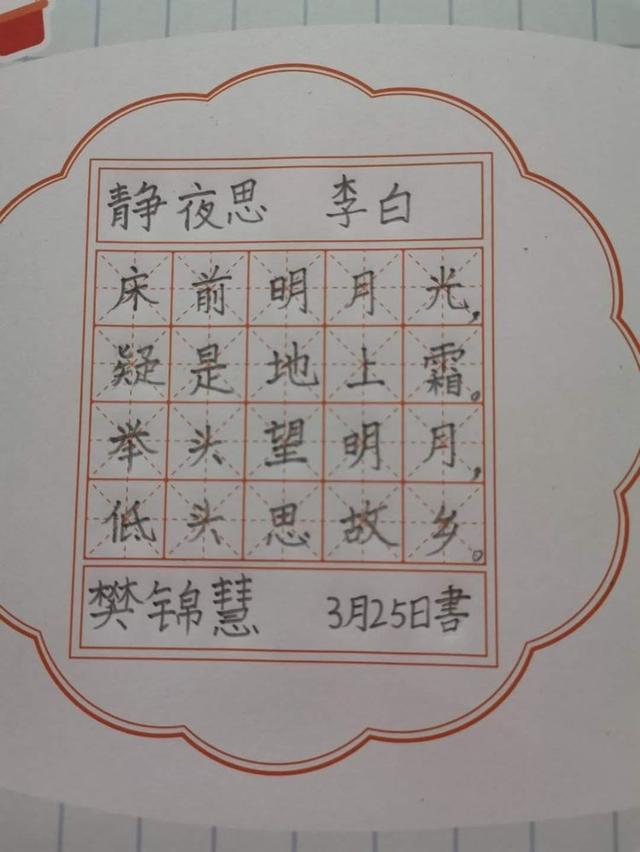 静夜思 李白
床前明月光，
疑是地上霜。
举头望明月，
低头思故乡。
樊锦慧 3月25日書